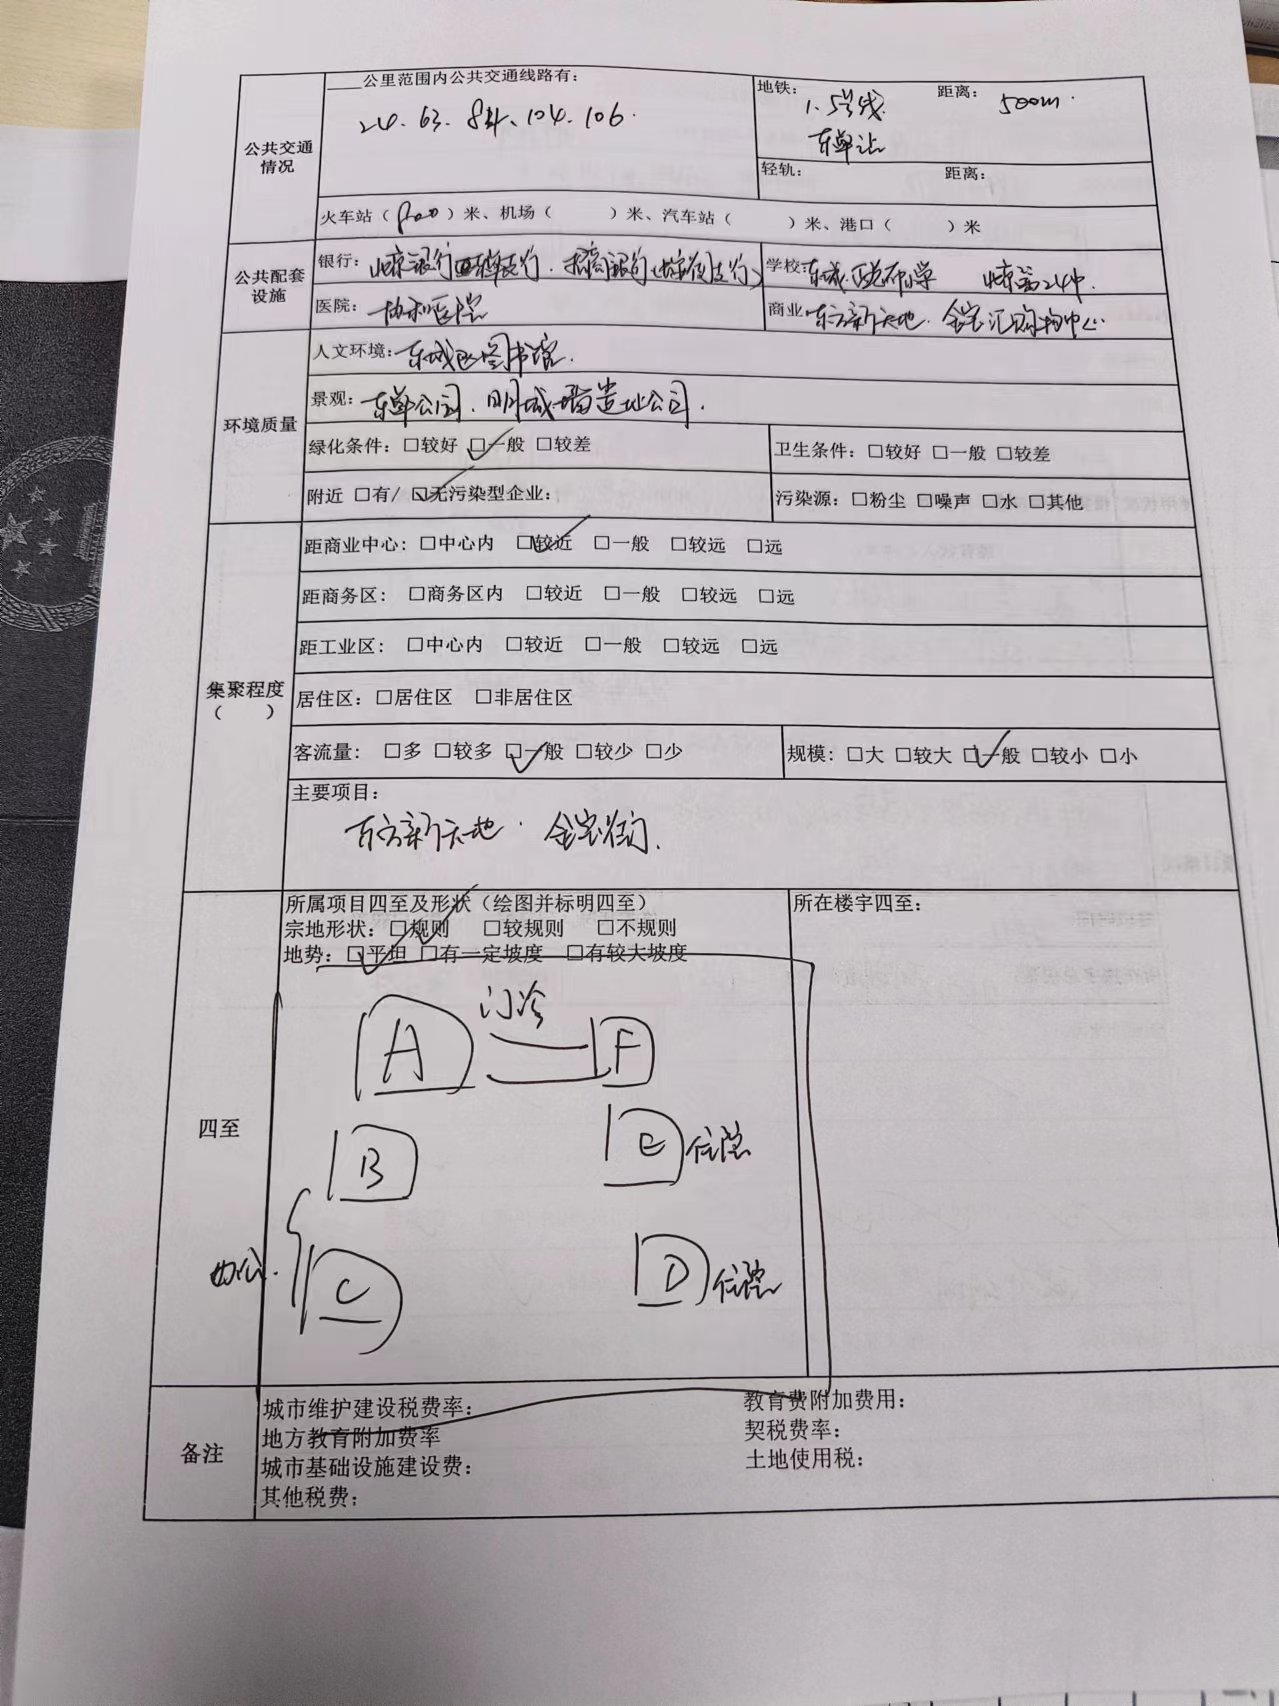 ____公里范围内公共交通线路有：
24. 63. 84、104. 106.
地铁： 1. 5号线 距离： 500m.
东单站
公共交通情况
轻轨： 距离：
火车站（ ）米、机场（ ）米、汽车站（ ）米、港口（ ）米
公共配套设施
银行：北京银行 东单支行. 招商银行（ 支行） 学校：东城 小学 北京第24中.
医院：协和医院 商业：东方新天地. 金宝汇购物中心
环境质量
人文环境：东城区图书馆.
景观：东单公园. 明城墙遗址公园.
绿化条件：□较好 □一般 □较差 卫生条件：□较好 □一般 □较差
附近 □有/ □无污染型企业： 污染源：□粉尘 □噪声 □水 □其他
集聚程度
（ ）
距商业中心：□中心内 □较近 □一般 □较远 □远
距商务区： □商务区内 □较近 □一般 □较远 □远
距工业区： □中心内 □较近 □一般 □较远 □远
居住区：□居住区 □非居住区
客流量： □多 □较多 □一般 □较少 □少 规模：□大 □较大 □一般 □较小 □小
主要项目：
东方新天地. 金宝街.
四至
所属项目四至及形状（绘图并标明四至） 所在楼宇四至：
宗地形状：□规则 □较规则 □不规则
地势：□平坦 □有一定坡度 □有较大坡度
门诊
A F
B E 住院
办公. C D 住院
备注
城市维护建设税费率： 教育费附加费用：
地方教育附加费率 契税费率：
城市基础设施建设费： 土地使用税：
其他税费：